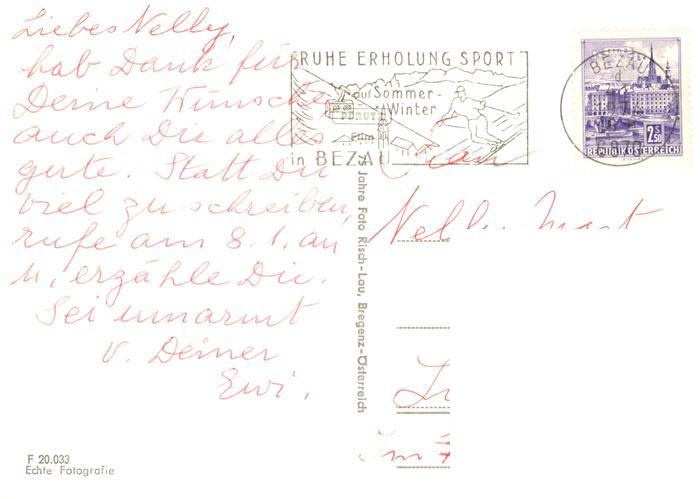 Liebes Nelly,
hab Dank für
Deine Wünsche
auch Dir alles
gute. Statt Dir
viel zu schreiben,
rufe am 8.1. an
u, erzähle Dir.
Sei umarmt
v. Deiner
Ewi.
F 20.033
Echte Fotografie
Jahre Foto Risch-Lau, Bregenz-Österreich
RUHE ERHOLUNG SPORT
auf Sommer-
Winter
PERUTZ
Film
in BEZAU
BEZAU
d
2 S
50
REPUBLIK ÖSTERREICH
Nelly
Im